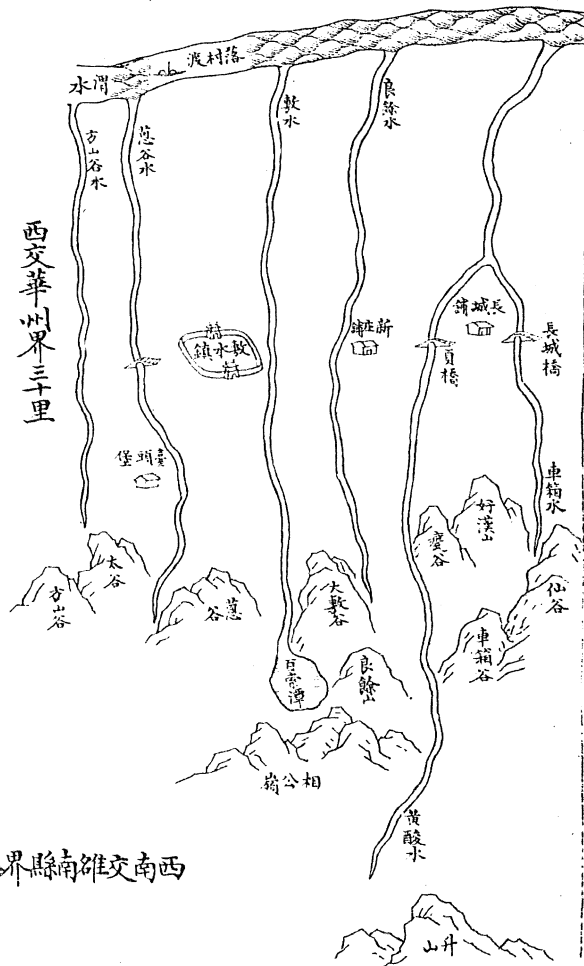 渭水
落村渡
方山谷水
蔥谷水
敷水
良餘水
西交華州界三十里
敷水鎮
新庄鋪
長城鋪
長城橋
頁橋
臺頭堡
車箱水
好漢山
甕谷
仙谷
太谷
方山谷
蔥谷
大敷谷
車箱谷
良餘山
相公嶺
黃酸水
西南交雒南縣界
升山